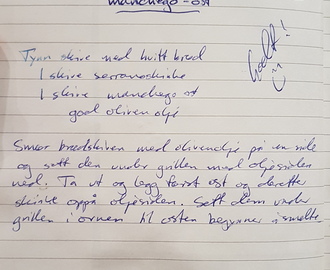 manchego-ost
Godt!
Tynn skive med hvitt brød
1 skive serranoskinke
1 skive manchego ost
god olivenolje
Smør brødskiven med olivenolje på en side
og sett den under grillen med oljesiden
ned. Ta ut og legg først ost og deretter
skinke oppå oljesiden. Sett dem under
grillen i ovnen til osten begynner å smelte